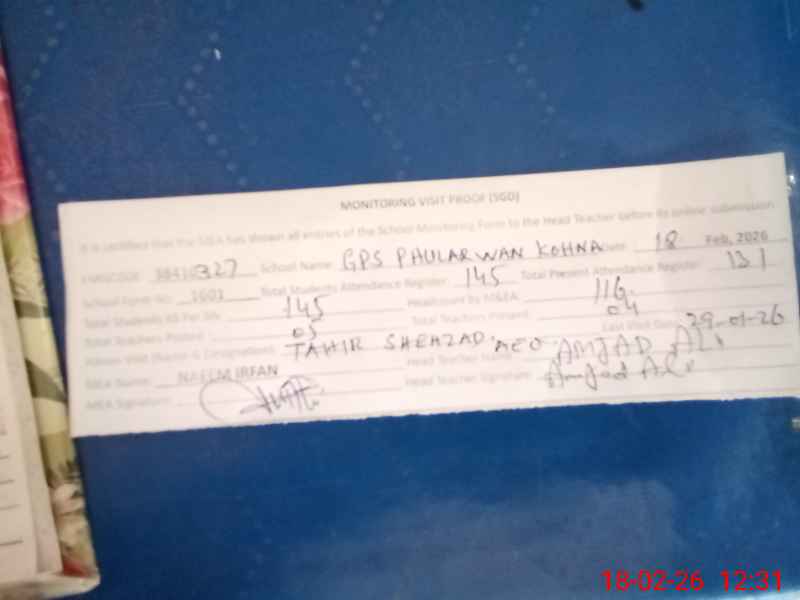 MONITORING VISIT PROOF (SGD)
It is certified that the MEA has shown all entries of the School Monitoring Form to the Head Teacher before its online submission
EMISCODE 38410327 School Name GPS PHULARWAN KOHNA Date 18 Feb, 2026
School Form No. 1601 Total Students Attendance Register 145 Total Present Attendance Register 131
Total Students As Per SIS 145 Headcount by M&EA 116
Total Teachers Posted 05 Total Teachers Present 04
TAHIR SHEHZAD AEO Last Visit Date 29-01-26
MEA Name: NAEEM IRFAN Head Teacher Name AMJAD Ali
MEA Signature: Head Teacher Signature: Amjad Ali
18-02-26 12:31